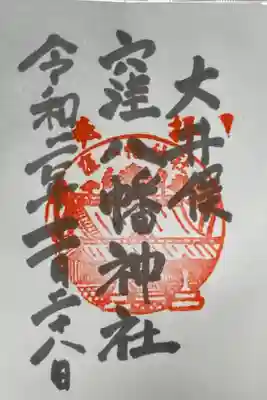 大井俣
窪八幡神社
令和二年十二月二十八日